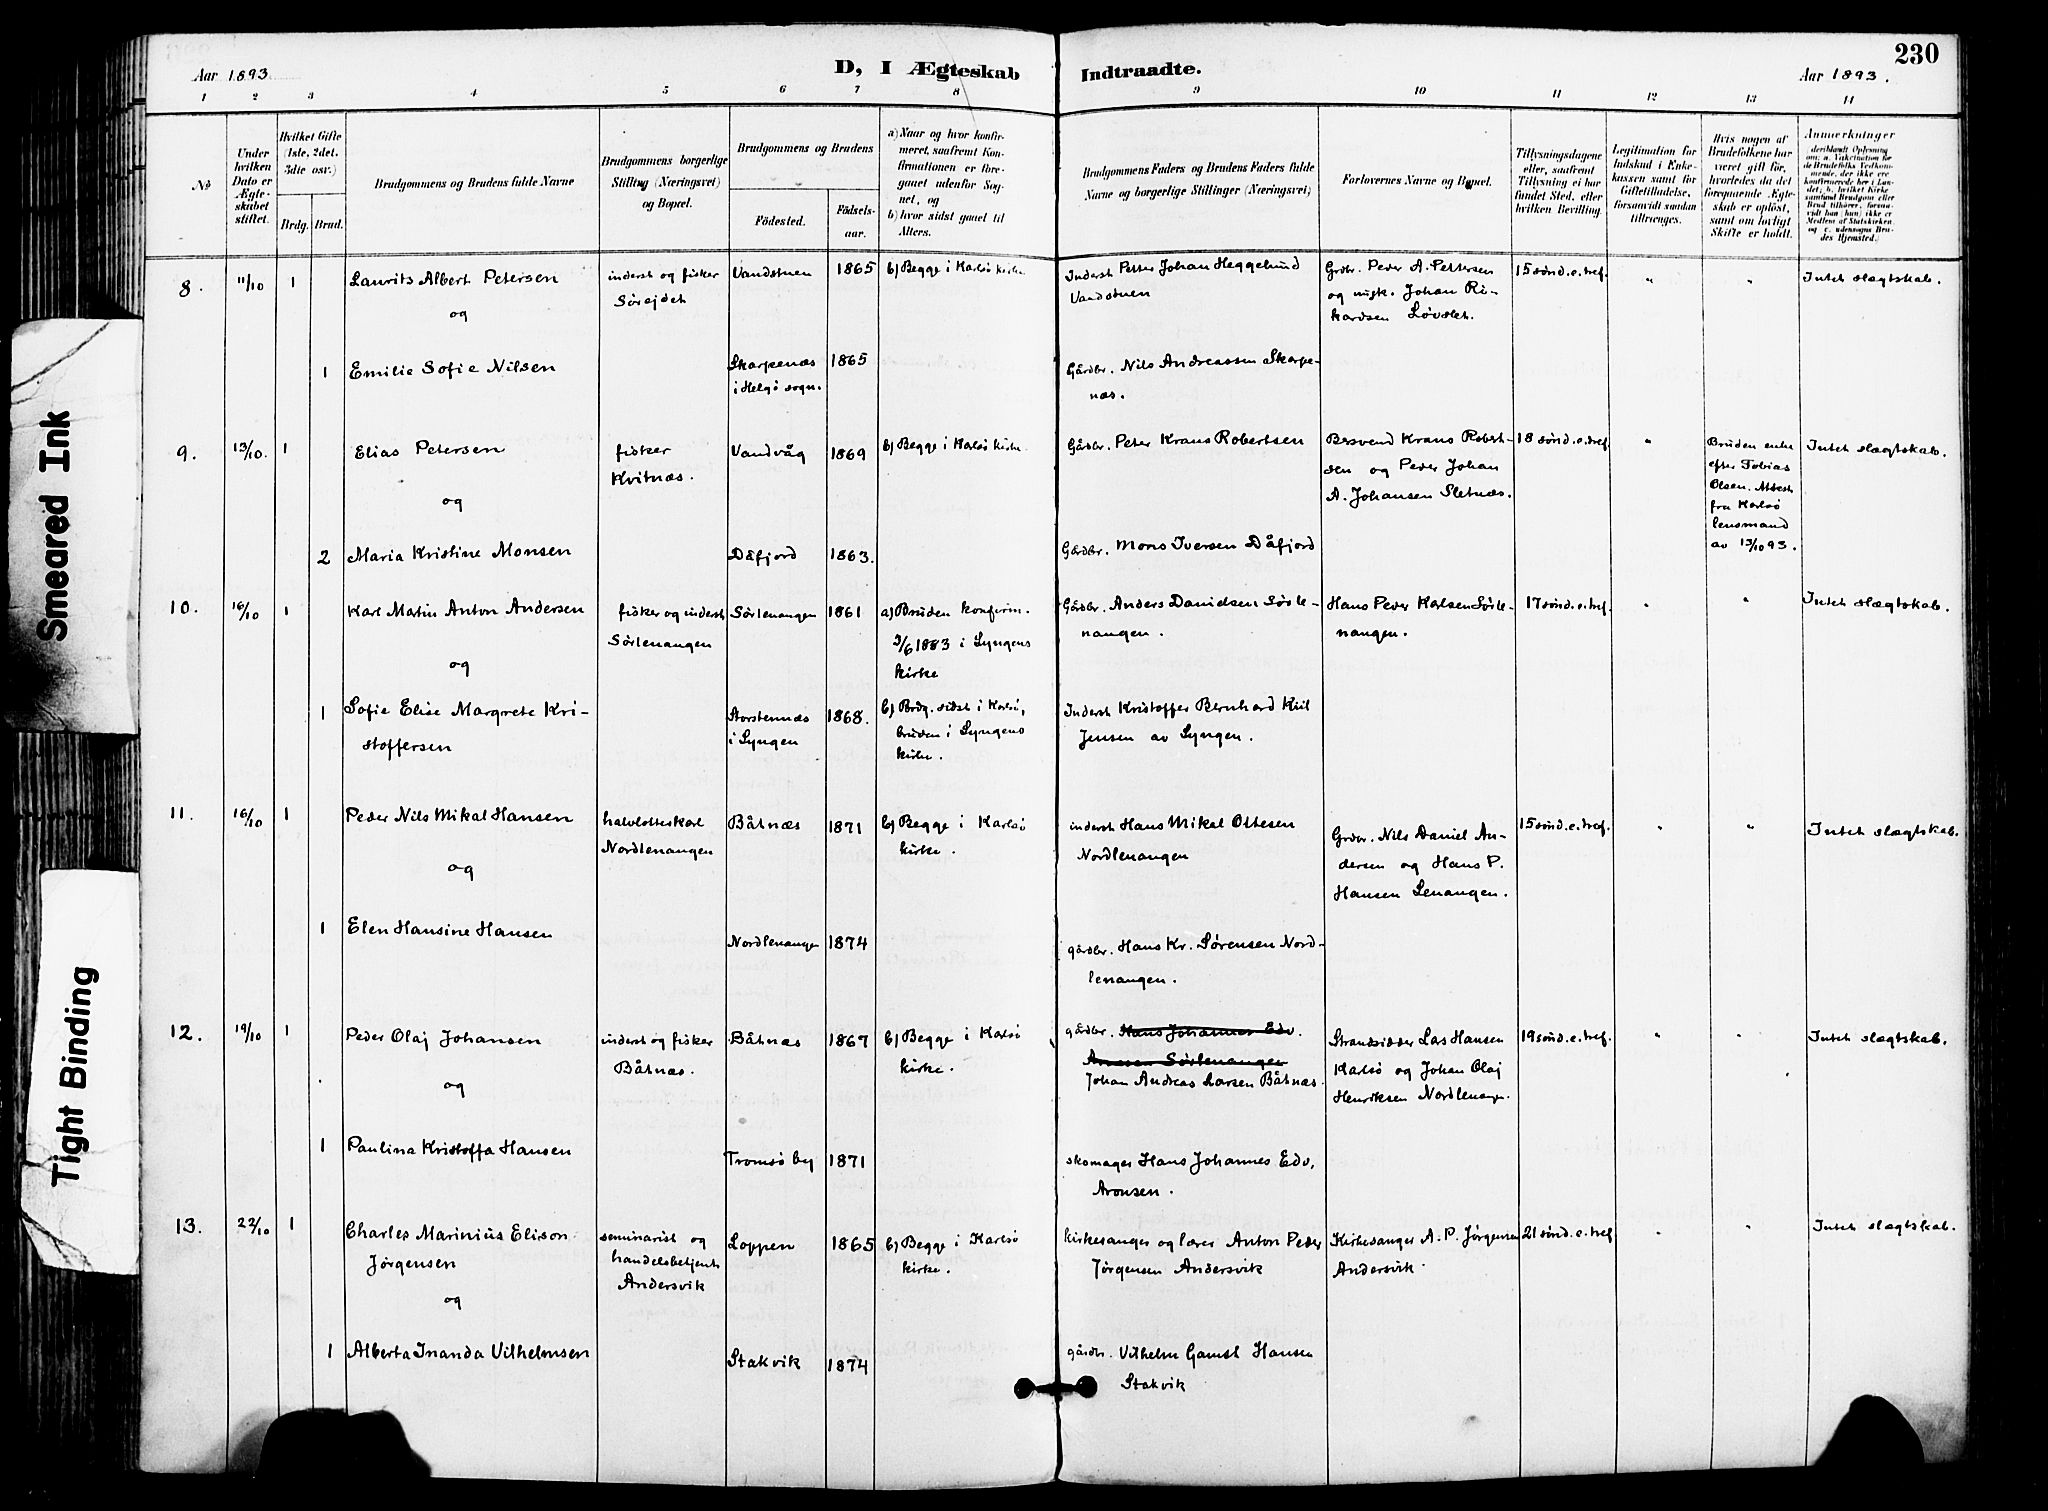 Smeared Ink
Tight Binding
230
Aar 1893.
D, I Ægteskab
Indtraadte.
Aar 1893.
1 2 3 4 5 6 7 8 9 10 11 12 13 14
No
Under hvilken Dato er Ægteskabet stiftet.
Hvilket Gifte (1ste, 2det, 3die osv.)
Brdg. Brud.
Brudgommens og Brudens fulde Navne
Brudgommens borgerlige Stilling (Næringsvei) og Bopæl.
Brudgommens og Brudens
Fødested.
Fødselsaar.
a) Naar og hvor konfirmeret, saafremt Konfirmationen er foregaaet udenfor Sognet, og
b) hvor sidst gaaet til Alters.
Brudgommens Faders og Brudens Faders fulde Navne og borgerlige Stillinger (Næringsvei)
Forlovernes Navne og Bopæl.
Tillysningsdagene eller, saafremt Tillysning ei har fundet Sted, efter hvilken Bevilling.
Legitimation for Indskud i Enkekassen samt for Giftetilladelse, forsaavidt saadan tiltrænges.
Hvis nogen af Brudefolkene har været gift før, hvorledes da det foregaaende Ægteskab er opløst, samt om lovligt Skifte er holdt.
Anmerkninger
deriblandt Oplysning om: a. Vakcination for de Brudefolks Vedkommende, der ikke ere konfirmerede her i Landet; b. hvilket Kirkesamfund Brudgom eller Brud tilhører, forsaavidt han (hun) ikke er Medlem af Statskirken, og c. udensogns Brudes Hjemsted.)
8.
11/10
1
Laurits Albert Petersen
og
inderst og fisker
Sørejdet
Vandstuen
1865
b) Begge i Karlsø kirke
Inderst Petter Johan Heggelund
Vandstuen
Grdbr. Peder A. Pettersen
og ungk. Johan Ri-
kardsen Løvslet.
15 sønd. e. tref.
"
"
Intet slægtskab.
1
Emilie Sofie Nilsen
Skarpenæs
i Helgø sogn.
1865
Gårdbr. Nils Andreassen Skarpe-
næs.
9.
13/10.
1
Elias Petersen
og
fisker
Kvitnæs.
Vandvåg
1869
b) Begge i Karlsø kirke.
Gårdbr. Peter Krans Robertsen
Bersvend Krans Robert-
sen og Peder Johan
A. Johansen Sletnæs.
18 sønd. e. tref.
"
Bruden enke
efter Tobias
Olsen. Attest
fra Karlsø
lensmand
av 13/10 93.
Intet slægtskab.
2
Maria Kristine Monsen
Dåfjord
1863.
Gårdbr. Mons Iversen Dåfjord
10.
16/10
1
Karl Martin Anton Andersen
og
fisker og inderst
Sørlenangen
Sørlenangen
1861
a) Bruden konfirm.
3/6 1883 i Lyngens
kirke
Gårdbr. Anders Danielsen Sørle-
nangen.
Hans Peder Karlsen Sørle-
nangen.
17 sønd. e. tref.
"
"
Intet slægtskab.
1
Sofie Elise Margrete Kri-
stoffersen
Storstennæs
i Lyngen
1868.
b) Brdg. sidst i Karlsø,
bruden i Lyngens
kirke.
Inderst Kristoffer Bernhard Kiil
Jensen av Lyngen.
11.
16/10
1
Peder Nils Mikal Hansen
og
halvlotteskarl
Nordlenangen
Båtnæs
1871
b) Begge i Karlsø
kirke.
inderst Hans Mikal Ottesen
Nordlenangen
Grdbr. Nils Daniel An-
dersen og Hans P.
Hansen Lenangen.
15 sønd. e. tref.
"
"
Intet slægtskab.
1
Elen Hansine Hansen
Nordlenangen
1874
gårdbr. Hans Kr. Sørensen Nord-
lenangen.
12.
19/10
1
Peder Olaj Johansen
og
inderst og fisker
Båtnæs.
Båtnæs
1867
b) Begge i Karlsø
kirke.
gårdbr. Hans Johannes Edv.
Aronsen Sørlenangen
Johan Andreas Larsen Båtnæs.
Strandsidder Lars Hansen
Karlsø og Johan Olaj
Henriksen Nordlenangen.
19 sønd. e. tref.
"
"
Intet slægtskab.
1
Paulina Kristoffa Hansen
Tromsø by
1871
skomager Hans Johannes Edv.
Aronsen.
13.
22/10
1
Charles Marinius Elison
Jørgensen
og
seminarist og
handelsbetjent
Andersvik
Loppen
1865
b) Begge i Karlsø
kirke.
kirkesanger og lærer Anton Peder
Jørgensen Andersvik
Kirkesanger A. P. Jørgensen
Andersvik
21 sønd. e. tref
"
"
Intet slægtskab.
1
Alberta Inanda Vilhelmsen
Stakvik
1874
gårdbr. Vilhelm Gamst Hansen
Stakvik